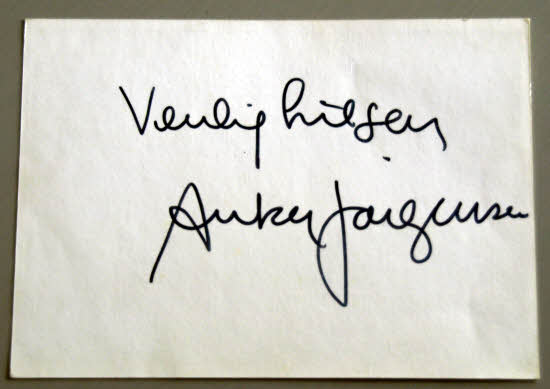 Venlig hilsen
Anker Jørgensen